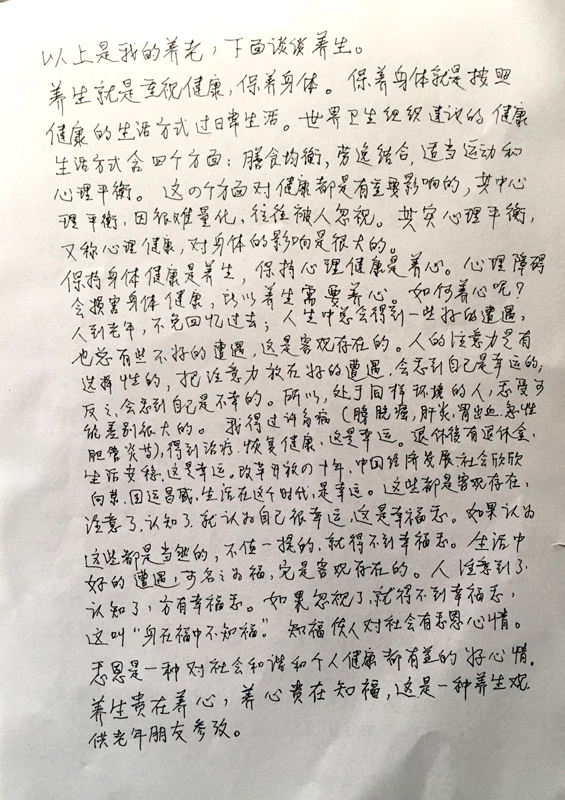 以上是我的养老，下面谈谈养生。
养生就是重视健康，保养身体。保养身体就是按照
健康的生活方式过日常生活。世界卫生组织建议的健康
生活方式含四个方面：膳食均衡，劳逸结合，适当运动和
心理平衡。这四个方面对健康都是有重要影响的，其中心
理平衡，因很难量化，往往被人忽视。其实心理平衡，
又称心理健康，对身体的影响是很大的。
保持身体健康是养生，保持心理健康是养心。心理障碍
会损害身体健康，所以养生需要养心。如何养心呢？
人到老年，不免回忆过去；人生中总会得到一些好的遭遇，
也总有些不好的遭遇，这是客观存在的。人的注意力是有
选择性的，把注意力放在好的遭遇，会感到自己是幸运的；
反之，会感到自己是不幸的。所以，处于同样环境的人，感受可
能差别很大的。我得过许多病（膀胱癌，肝炎，胃出血，急性
胆管炎等），得到治疗，恢复健康，这是幸运。退休後有退休金，
生活安稳，这是幸运。改革开放四十年，中国经济发展，社会欣欣
向荣，国运昌盛，生活在这个时代，是幸运。这些都是客观存在，
注意了，认知了，就认为自己很幸运，这是幸福感。如果认为
这些都是当然的，不值一提的，就得不到幸福感。生活中
好的遭遇，可名之为福，它是客观存在的。人注意到了，
认知了，方有幸福感。如果忽视了，就得不到幸福感，
这叫“身在福中不知福。”知福使人对社会有感恩心情。
感恩是一种对社会和谐和个人健康都有益的好心情。
养生贵在养心，养心贵在知福，这是一种养生观，
供老年朋友参考。